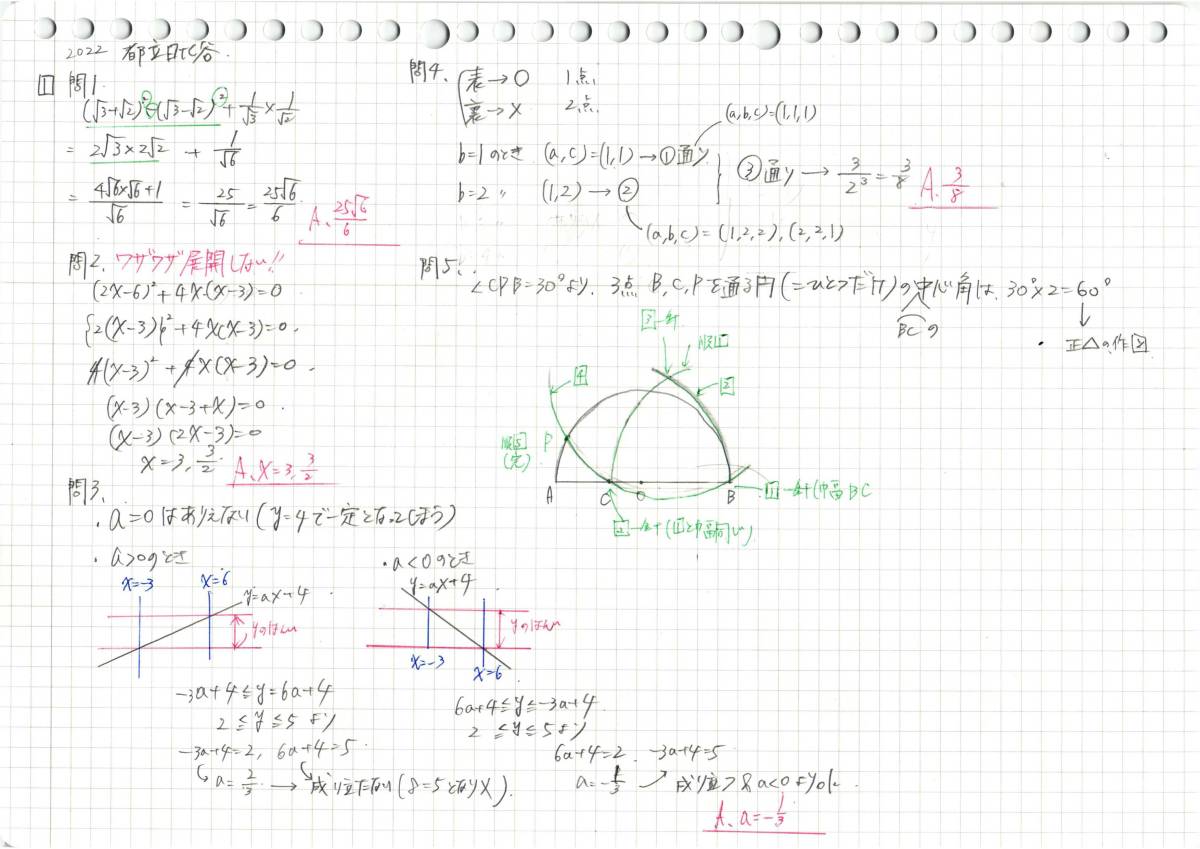 2022 都立日比谷.
1 問1.
(√3+√2)²-(√3-√2)² + 1/√3 × 1/√2
= 2√3×2√2 + 1/√6
= 4√6×√6+1/√6 = 25/√6 = 25√6/6
A. 25√6/6
問2. ワザワザ展開しない!!
(2x-6)²+4x(x-3)=0
{2(x-3)}²+4x(x-3)=0.
4(x-3)²+4x(x-3)=0.
(x-3)(x-3+x)=0.
(x-3)(2x-3)=0
x=3, 3/2.
A. x=3, 3/2
問3.
・a=0はありえない(y=4で一定となってしまう)
・a>0のとき
x=-3
x=6
y=ax+4.
yのはんい
-3a+4≦y=6a+4
2≦y≦5より
-3a+4=2, 6a+4=5.
a=2/3 → 成り立たない(8=5となり×).
・a<0のとき
y=ax+4
yのはんい
x=-3
x=6
6a+4≦y≦-3a+4.
2≦y≦5より
6a+4=2. -3a+4=5
a=-1/3 → 成り立つ & a<0よりok.
A. a=-1/3
問4. 表→○ 1点
裏→× 2点
(a,b,c)=(1,1,1)
b=1のとき (a,c)=(1,1)→①通り
b=2 〃 (1,2)→②
③通り→3/2³=3/8
A. 3/8
(a,b,c)=(1,2,2),(2,2,1)
問5.
∠CPB=30°より. 3点 B,C,Pを通る円(=ひとつだけ)の中心角は. 30°×2=60°
BCの
・正△の作図
3 一針
順1
4
2
順5
(完)
P
A
C
O
B
1 一針(巾幅BC
2 一針(1と巾幅同じ)